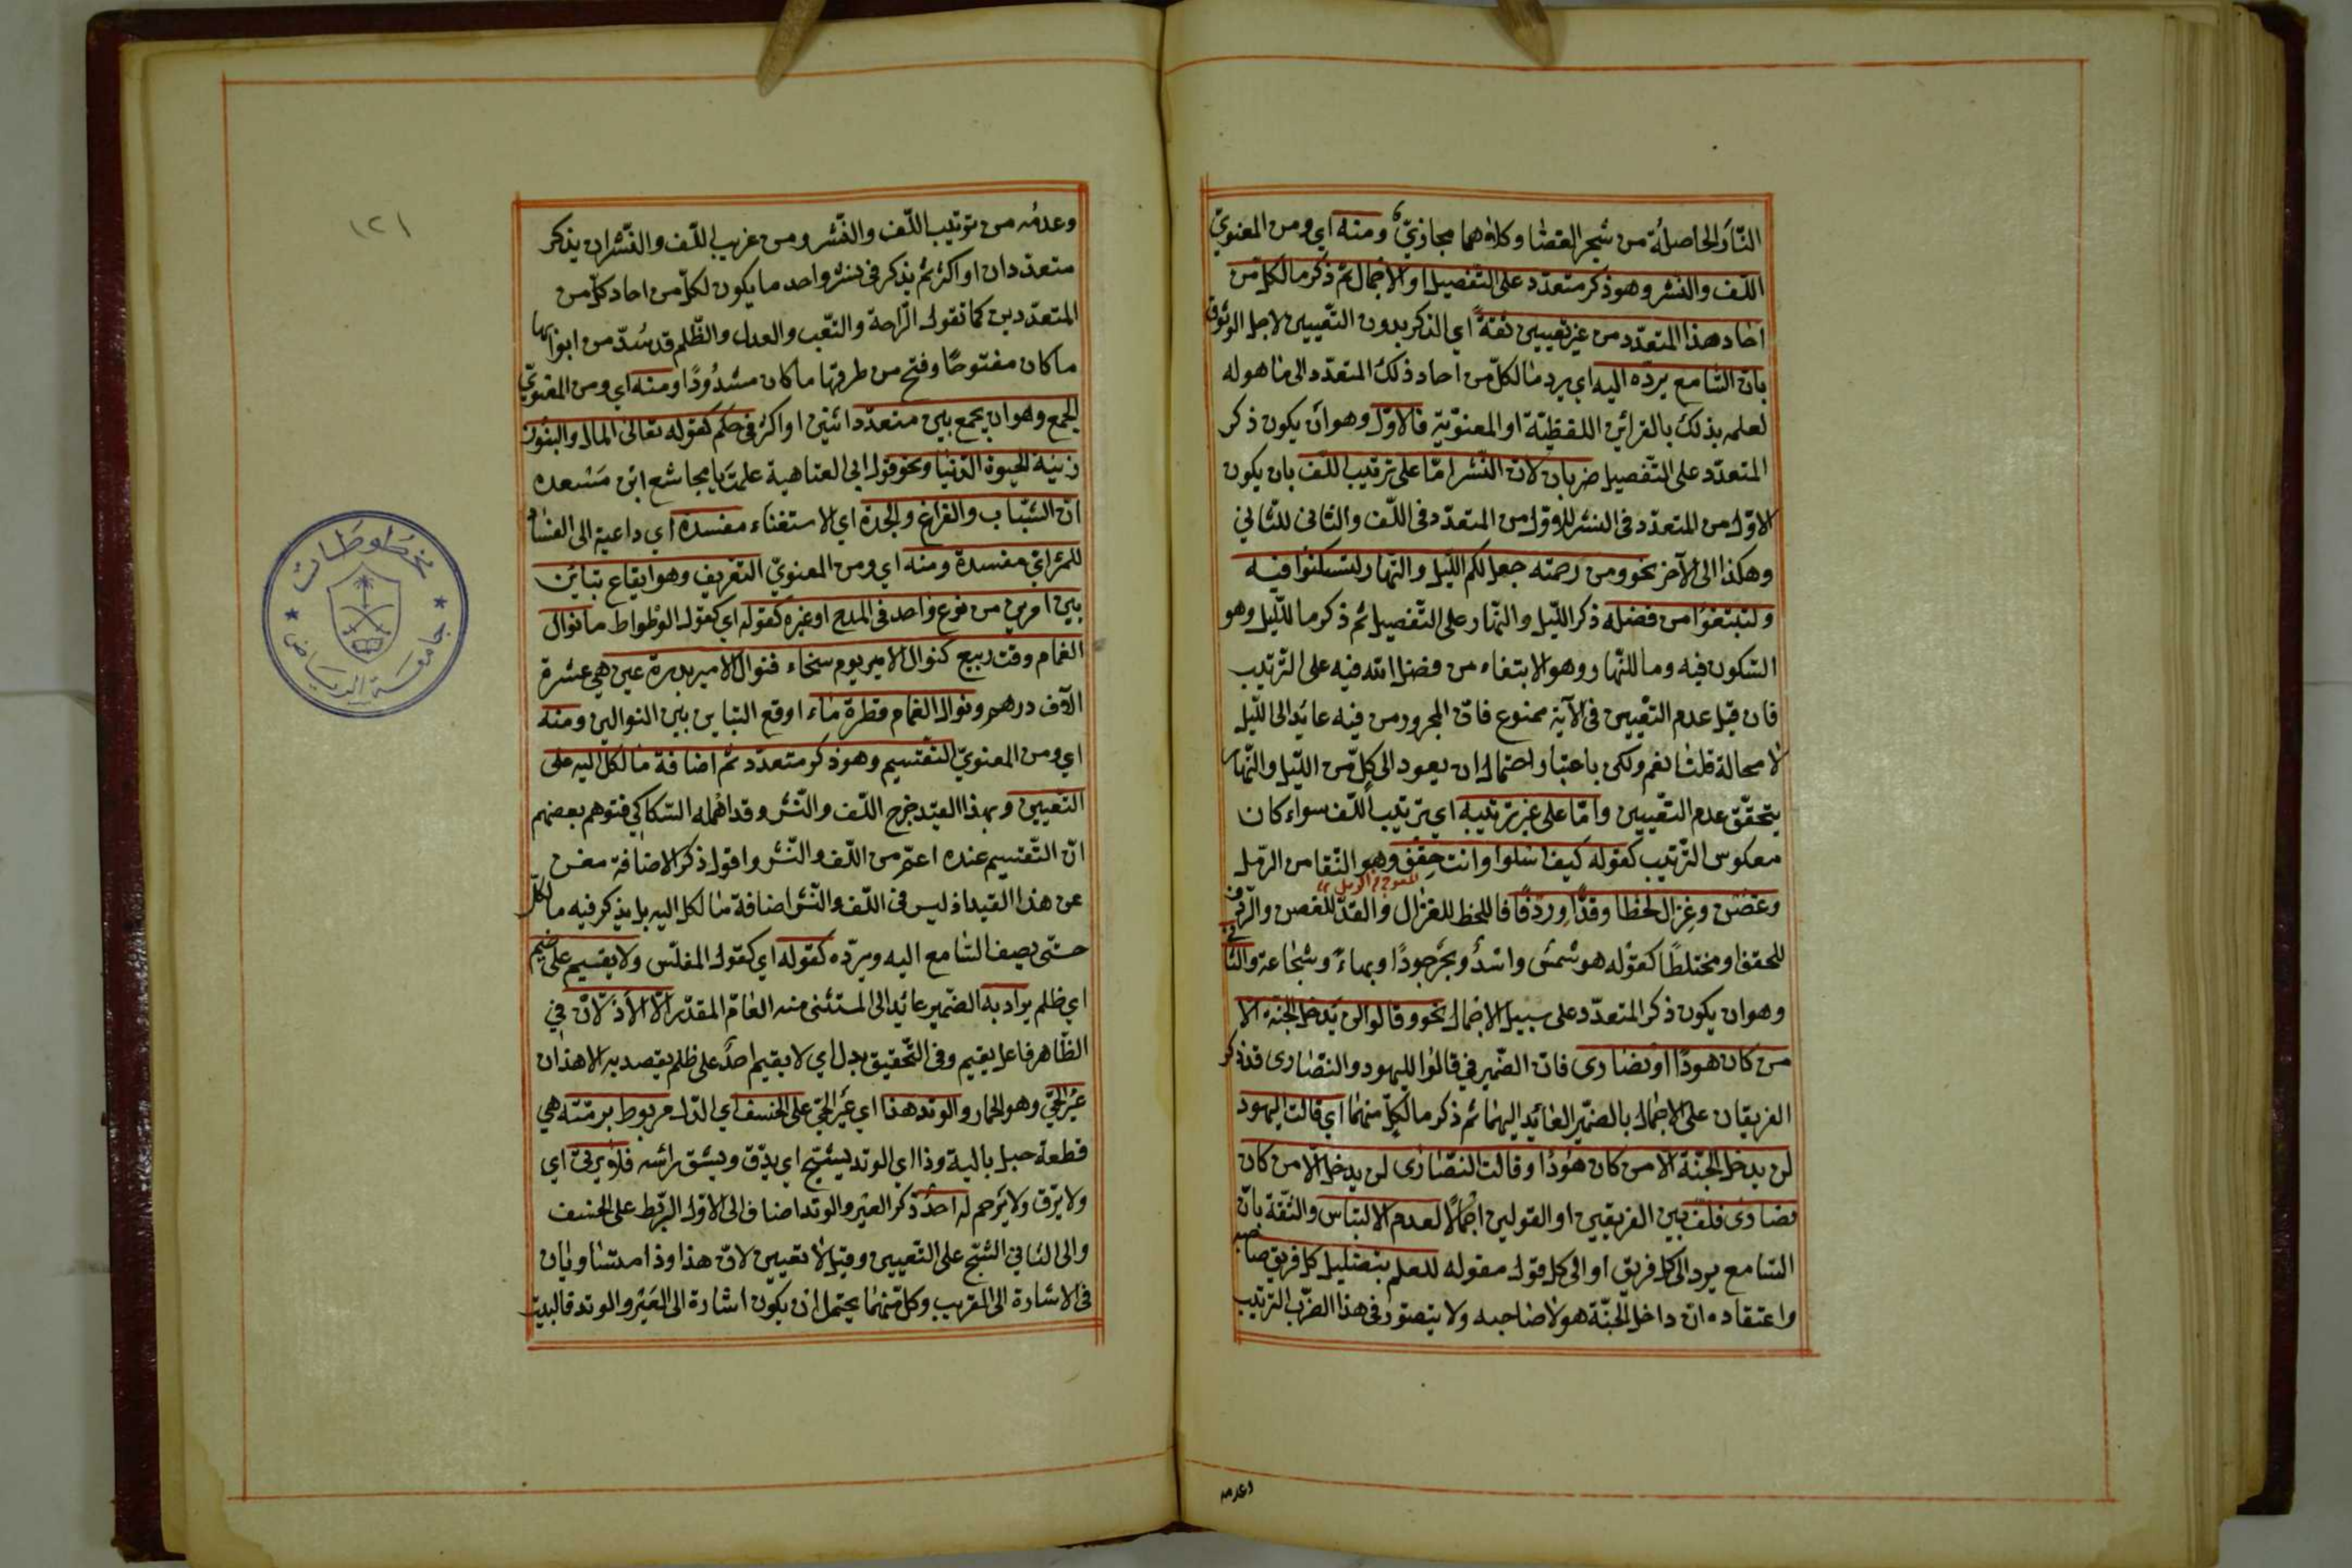 النار الحاصلة من شجر الغضا وكلاهما مجازيّ ومنه اي ومن المعنويّ
اللّف والنشر وهو ذكر متعدّد على التّفصيل او الاجمال ثم ذكر ما لكلّ من
احاد هذا المتعدّد من غير تعيين ثقةً اي الذكر بدون التّعيين لاجل الوثوق
بانّ السّامع يردّه اليه اي يرد ما لكلّ من احاد ذلك المتعدّد الى ما هو له
لعلمه بذلك بالقرائن اللفظيّة او المعنويّة فالاوّل وهو ان يكون ذكر
المتعدّد على التّفصيل ضربان لانّ النّشر امّا على ترتيب اللّف بان يكون
الاوّل من المتعدّد فى النشر للاوّل من المتعدّد فى اللّف والثانى للثّانى
وهكذا الى الآخر نحو ومن رحمته جعل لكم اللّيل والنّهار لتسكنوا فيه
ولتبتغوا من فضله ذكر اللّيل والنّهار على التّفصيل ثم ذكر ما للّيل وهو
السّكون فيه وما للنّهار وهو الابتغاء من فضل الله فيه على التّرتيب
فان قيل عدم التّعيين فى الآية ممنوع فانّ المجرور من فيه عائد الى اللّيل
لا محالة قلنا نعم ولكن باعتبار احتمال ان يعود الى كلّ من اللّيل والنّهار
يتحقّق عدم التّعيين وامّا على غير ترتيبه اي ترتيب اللّف سواء كان
معكوس التّرتيب كقوله كيف اسلوا وانت حِقف وهو النّقا من الرّمل
المعوج من الرمل
وغصن وغزال لحظا وقدّا وردفًا فاللحظ للغزال والقدّ للغصن والرّدف
للحقف او مختلطًا كقوله هو شمس واسد وبحر جودًا وبهاءً وشجاعة والثانى
وهو ان يكون ذكر المتعدّد على سبيل الاجمال نحو وقالوا لن يدخل الجنّة الا
من كان هودًا او نصارى فانّ الضّمير فى قالوا لليهود والنّصارى فذكر
الفريقان على الاجمال بالضمير العائد اليهما ثم ذكر ما لكلّ منهما اي قالت اليهود
لن يدخل الجنّة الا من كان هودًا وقالت النّصارى لن يدخل الا من كان
نصارى فلفّ بين الفريقين او القولين اجمالًا لعدم الالتباس والثّقة بانّ
السّامع يرد الى كلّ فريق او الى كلّ قول مقوله للعلم بتضليل كلّ فريق صاحبه
واعتقاده انّ داخل الجنّة هو لا صاحبه ولا يتصوّر فى هذا الضّرب التّرتيب
وعدمه
وعدمه من ترتيب اللّف والنّشر ومن غريب اللّف والنّشر ان يذكر
متعدّدان او اكثر ثم يذكر فى نشر واحد ما يكون لكلّ من احاد كلّ من
المتعدّدين كما تقول الرّاحة والتّعب والعدل والظّلم قد سُدّ من ابوابها
ما كان مفتوحًا وفتح من طرقها ما كان مسدُودًا ومنه اي ومن المعنويّ
الجمع وهو ان يجمع بين متعدّد اثنين او اكثر فى حكم كقوله تعالى المال والبنون
زينة الحيوة الدّنيا ونحو قول ابى العتاهية علمت يا مجاشع ابن مسعده
انّ الشّباب والفراغ والجدة اي الاستغناء مفسدة اي داعية الى الفساد
للمرء اي مفسدة ومنه اي ومن المعنويّ التفريق وهو ايقاع تباين
بين امرين من نوع واحد فى المدح او غيره كقوله اي كقول الوطواط ما نوال
الغمام وقت ربيع كنوال الامير يوم سخاء فنوال الامير بدرة عين هي عشرة
الآف درهم ونوال الغمام قطرة ماء اوقع التباين بين النوالين ومنه
اي ومن المعنويّ التّقسيم وهو ذكر متعدّد ثم اضافة ما لكلّ اليه على
التّعيين وبهذا القيد خرج اللّف والنّشر وقد اهمله السّكاكي فتوهم بعضهم
انّ التّقسيم عنده اعمّ من اللّف والنّشر واقول ذكر الاضافة مغن
عن هذا القيد اذ ليس فى اللّف والنّشر اضافة ما لكل اليه بل يذكر فيه ما لكلّ
حتّى يضيف السّامع اليه ويردّه كقوله اي كقول المتلمّس ولا يقيم على ضيم
اي ظلم يراد به الضّمير عائد الى المستثنى منه العامّ المقدّر الّا الأذلّان فى
الظّاهر فاعل يقيم وفى التّحقيق بدل اي لا يقيم احدٌ على ظلم يقصد به الا هذان
عَيْر الحيّ وهو الحمار والوتد هذا اي عَيْر الحيّ على الخسف اي الذّل مربوط برمّته هي
قطعة حبل بالية وذا اي الوتد يشجّ اي يدقّ ويشق رأسه فلا يرثي اي
ولا يرقّ ولا يَرحم له احدٌ ذكر العير والوتد اضاف الى الاوّل الرّبط على الخسف
والى الثّانى الشّجّ على التّعيين وقيل لا تعيين لانّ هذا وذا متساويان
فى الاشارة الى القريب وكلّ منهما يحتمل ان يكون اشارة الى العَيْر والوتد فالبيت
١٢١
مخطوطات
جامعة الرياض